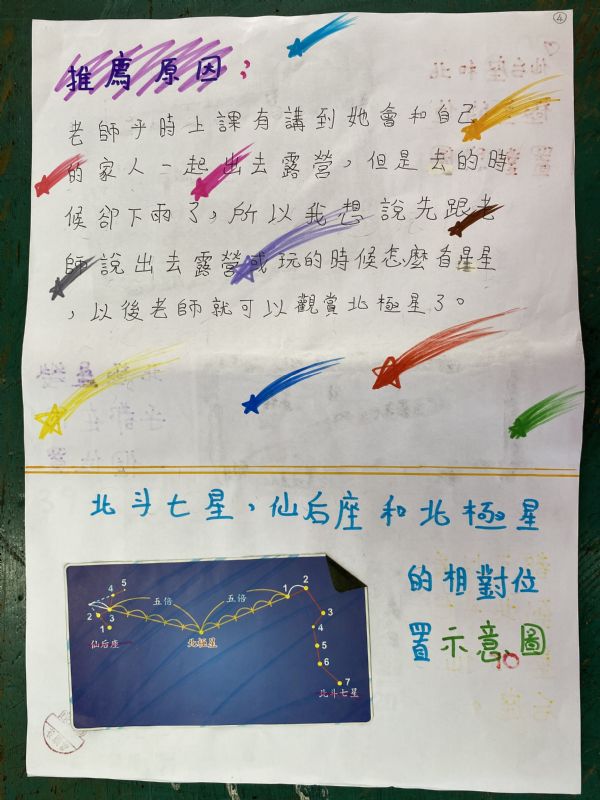 ④
推薦原因：
老師平時上課有講到她會和自己
的家人一起出去露營，但是去的時
候卻下雨了，所以我想說先跟老
師說出去露營或玩的時候怎麼看星星
，以後老師就可以觀賞北極星了。
北斗七星，仙后座和北極星
的相對位
置示意圖
10
4 5
五倍 五倍
1 2
2 3
1
3
4
5
6
7
仙后座 北極星 北斗七星